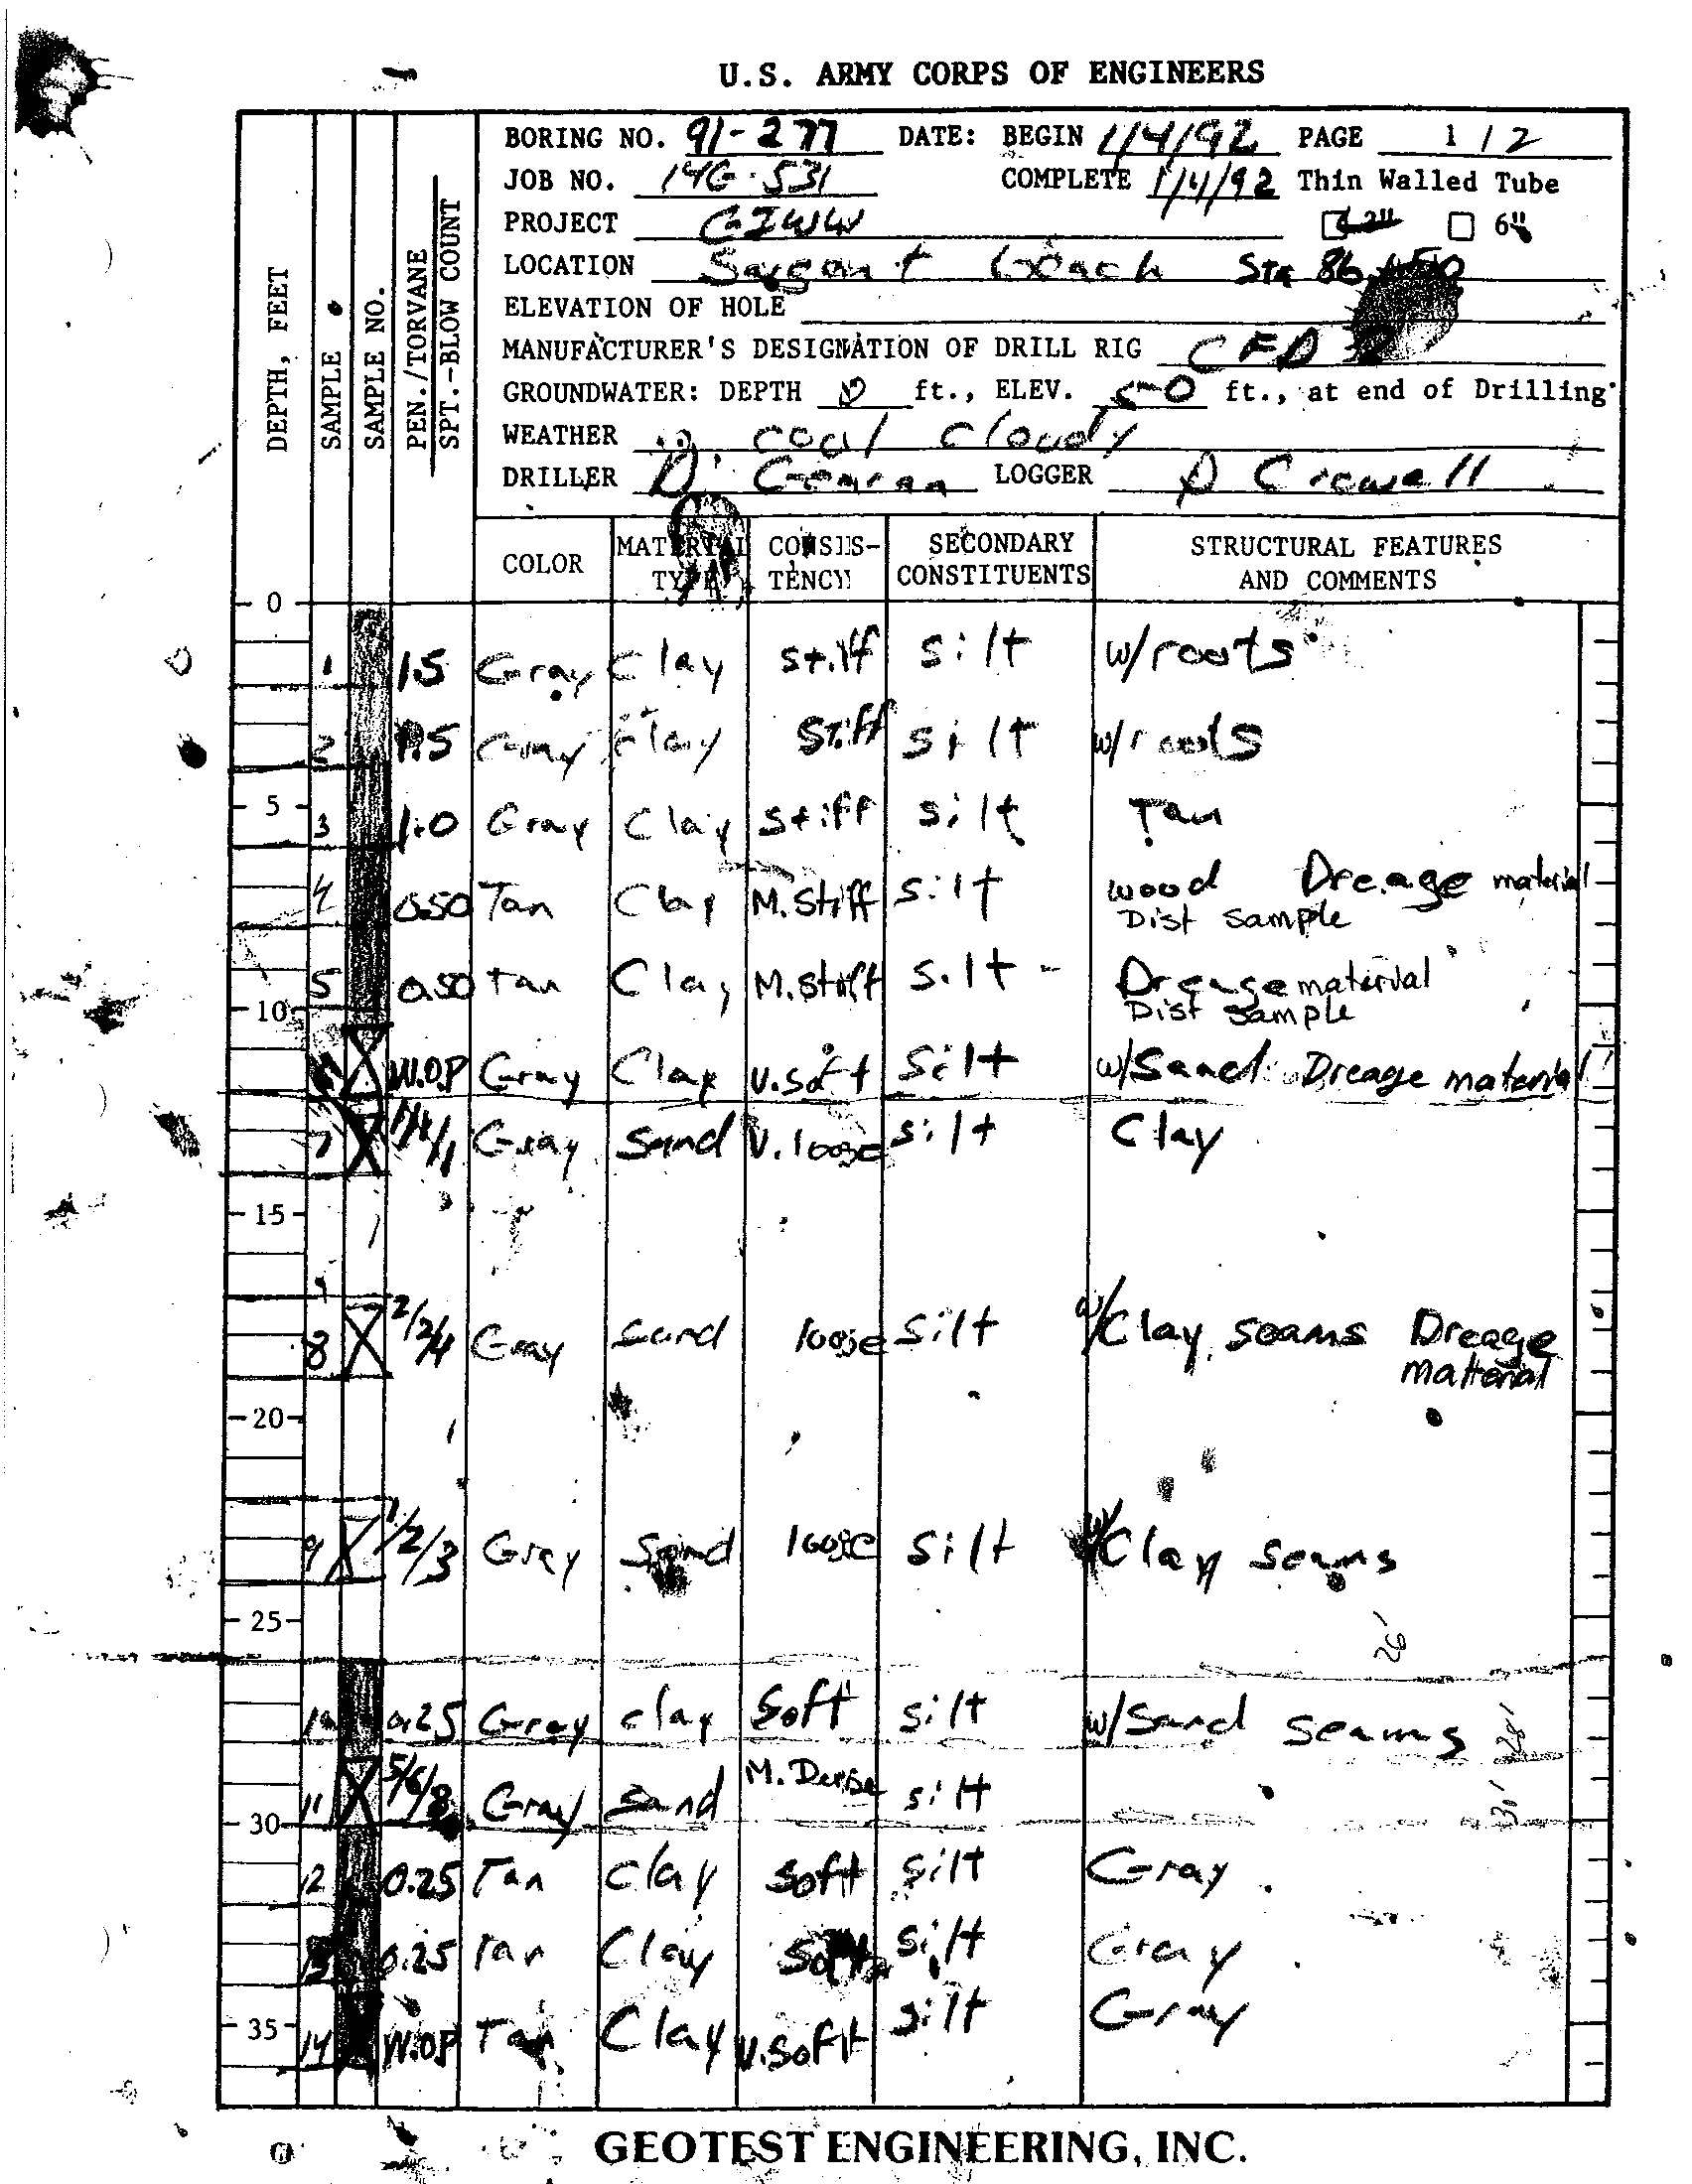 U.S. ARMY CORPS OF ENGINEERS
BORING NO. 91-277 DATE: BEGIN 1/4/92 PAGE 1 / 2
JOB NO. 14G-531 COMPLETE 1/4/92 Thin Walled Tube
PROJECT GIWW 6"
LOCATION Sargent Beach Sta 86+50
ELEVATION OF HOLE
MANUFACTURER'S DESIGNATION OF DRILL RIG CFD
GROUNDWATER: DEPTH 0 ft., ELEV. ft., at end of Drilling
WEATHER cool cloudy
DRILLER D. LOGGER D Crowell
DEPTH, FEET
SAMPLE
SAMPLE NO.
PEN./TORVANE
SPT.-BLOW COUNT
COLOR MATERIAL TYPE CONSIS-TENCY SECONDARY CONSTITUENTS STRUCTURAL FEATURES AND COMMENTS
0
1 1.5 Gray Clay Stiff silt w/roots
2 1.5 Gray Clay Stiff silt w/roots
5
3 1.0 Gray Clay Stiff silt Tan
4 0.50 Tan Clay M.Stiff silt wood Dreage material
Dist Sample
5 0.50 Tan Clay M.Stiff silt Dreage material
10 Dist Sample
6 W.O.P Gray Clay V.soft Silt w/Sand Dreage material
7 1/1/1 Gray Sand V.loose silt Clay
15
8 2/2/4 Gray Sand loose silt w/Clay seams Dreage
material
20
9 1/2/3 Gray Sand loose silt w/Clay seams
25
26'
10 0.25 Gray clay Soft silt w/Sand seams 28'
11 5/6/8 Gray Sand M. Dense silt
30
12 0.25 Tan Clay Soft silt Gray
13 0.25 Tan Clay Soft silt Gray
35
14 W.O.P Tan Clay V.Soft silt Gray
GEOTEST ENGINEERING, INC.